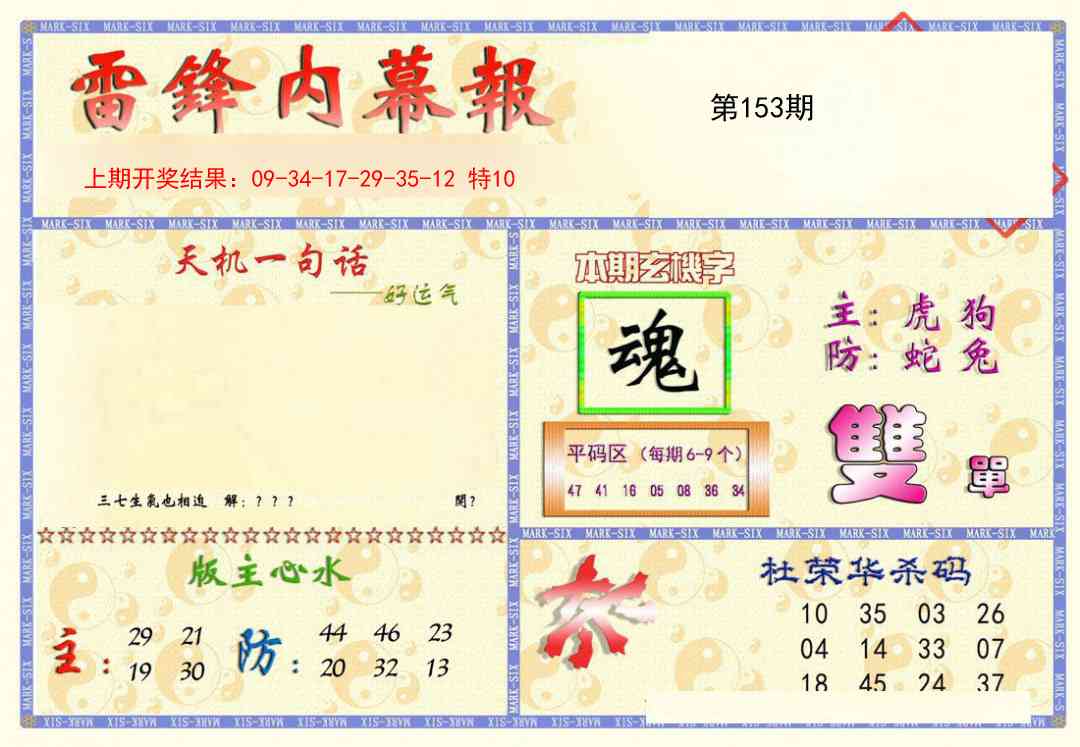 雷鋒内幕報
第153期
上期开奖结果：09-34-17-29-35-12 特10
天机一句话
——好运气
三七生氣也相迫 解：？？？ 開？
本期玄機字
魂
主：虎 狗
防：蛇 兔
平码区（每期6-9个）
47 41 16 05 08 36 34
雙 單
版主心水
主：29 21
19 30
防：44 46 23
20 32 13
杜荣华杀码
10 35 03 26
04 14 33 07
18 45 24 37
MARK-SIX